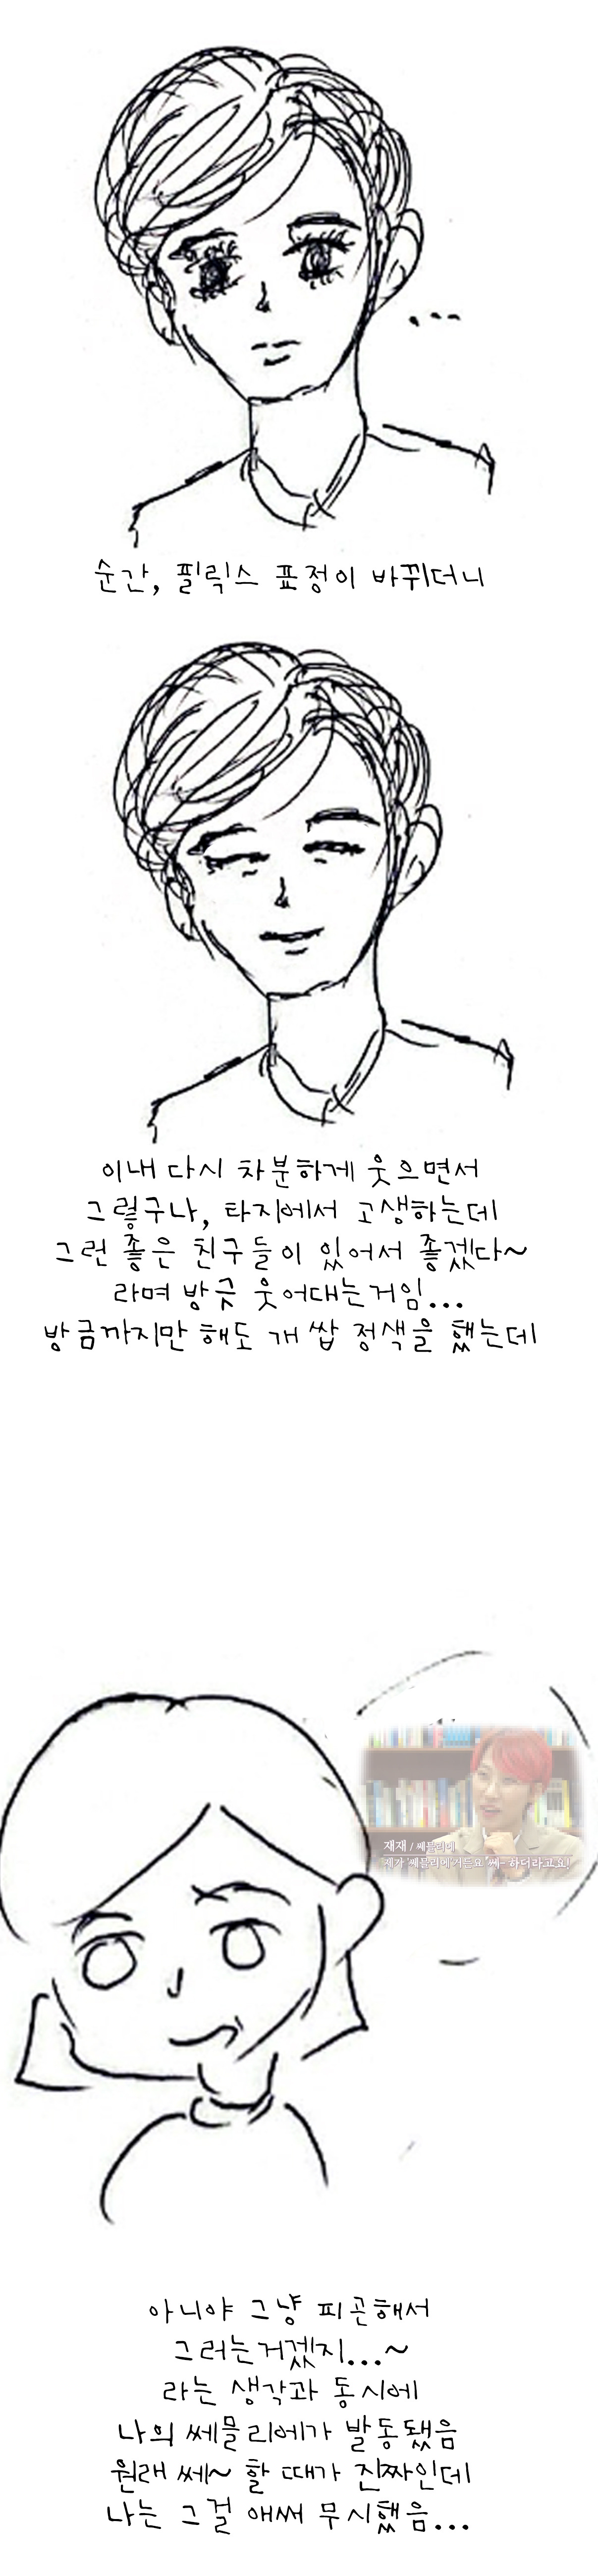 순간, 필릭스 표정이 바뀌더니
이내 다시 차분하게 웃으면서
그렇구나, 타지에서 고생하는데
그런 좋은 친구들이 있어서 좋겠다~
라며 방긋 웃어대는거임...
방금까지만 해도 개 쌉 정색을 했는데
재재 / 쎄믈리에
제가 '쎄믈리에'거든요 '쎄~' 하더라고요!
아니야 그냥 피곤해서
그러는거겠지...~
라는 생각과 동시에
나의 쎄믈리에가 발동됐음
원래 쎄~ 할 때가 진짜인데
나는 그걸 애써 무시했음...